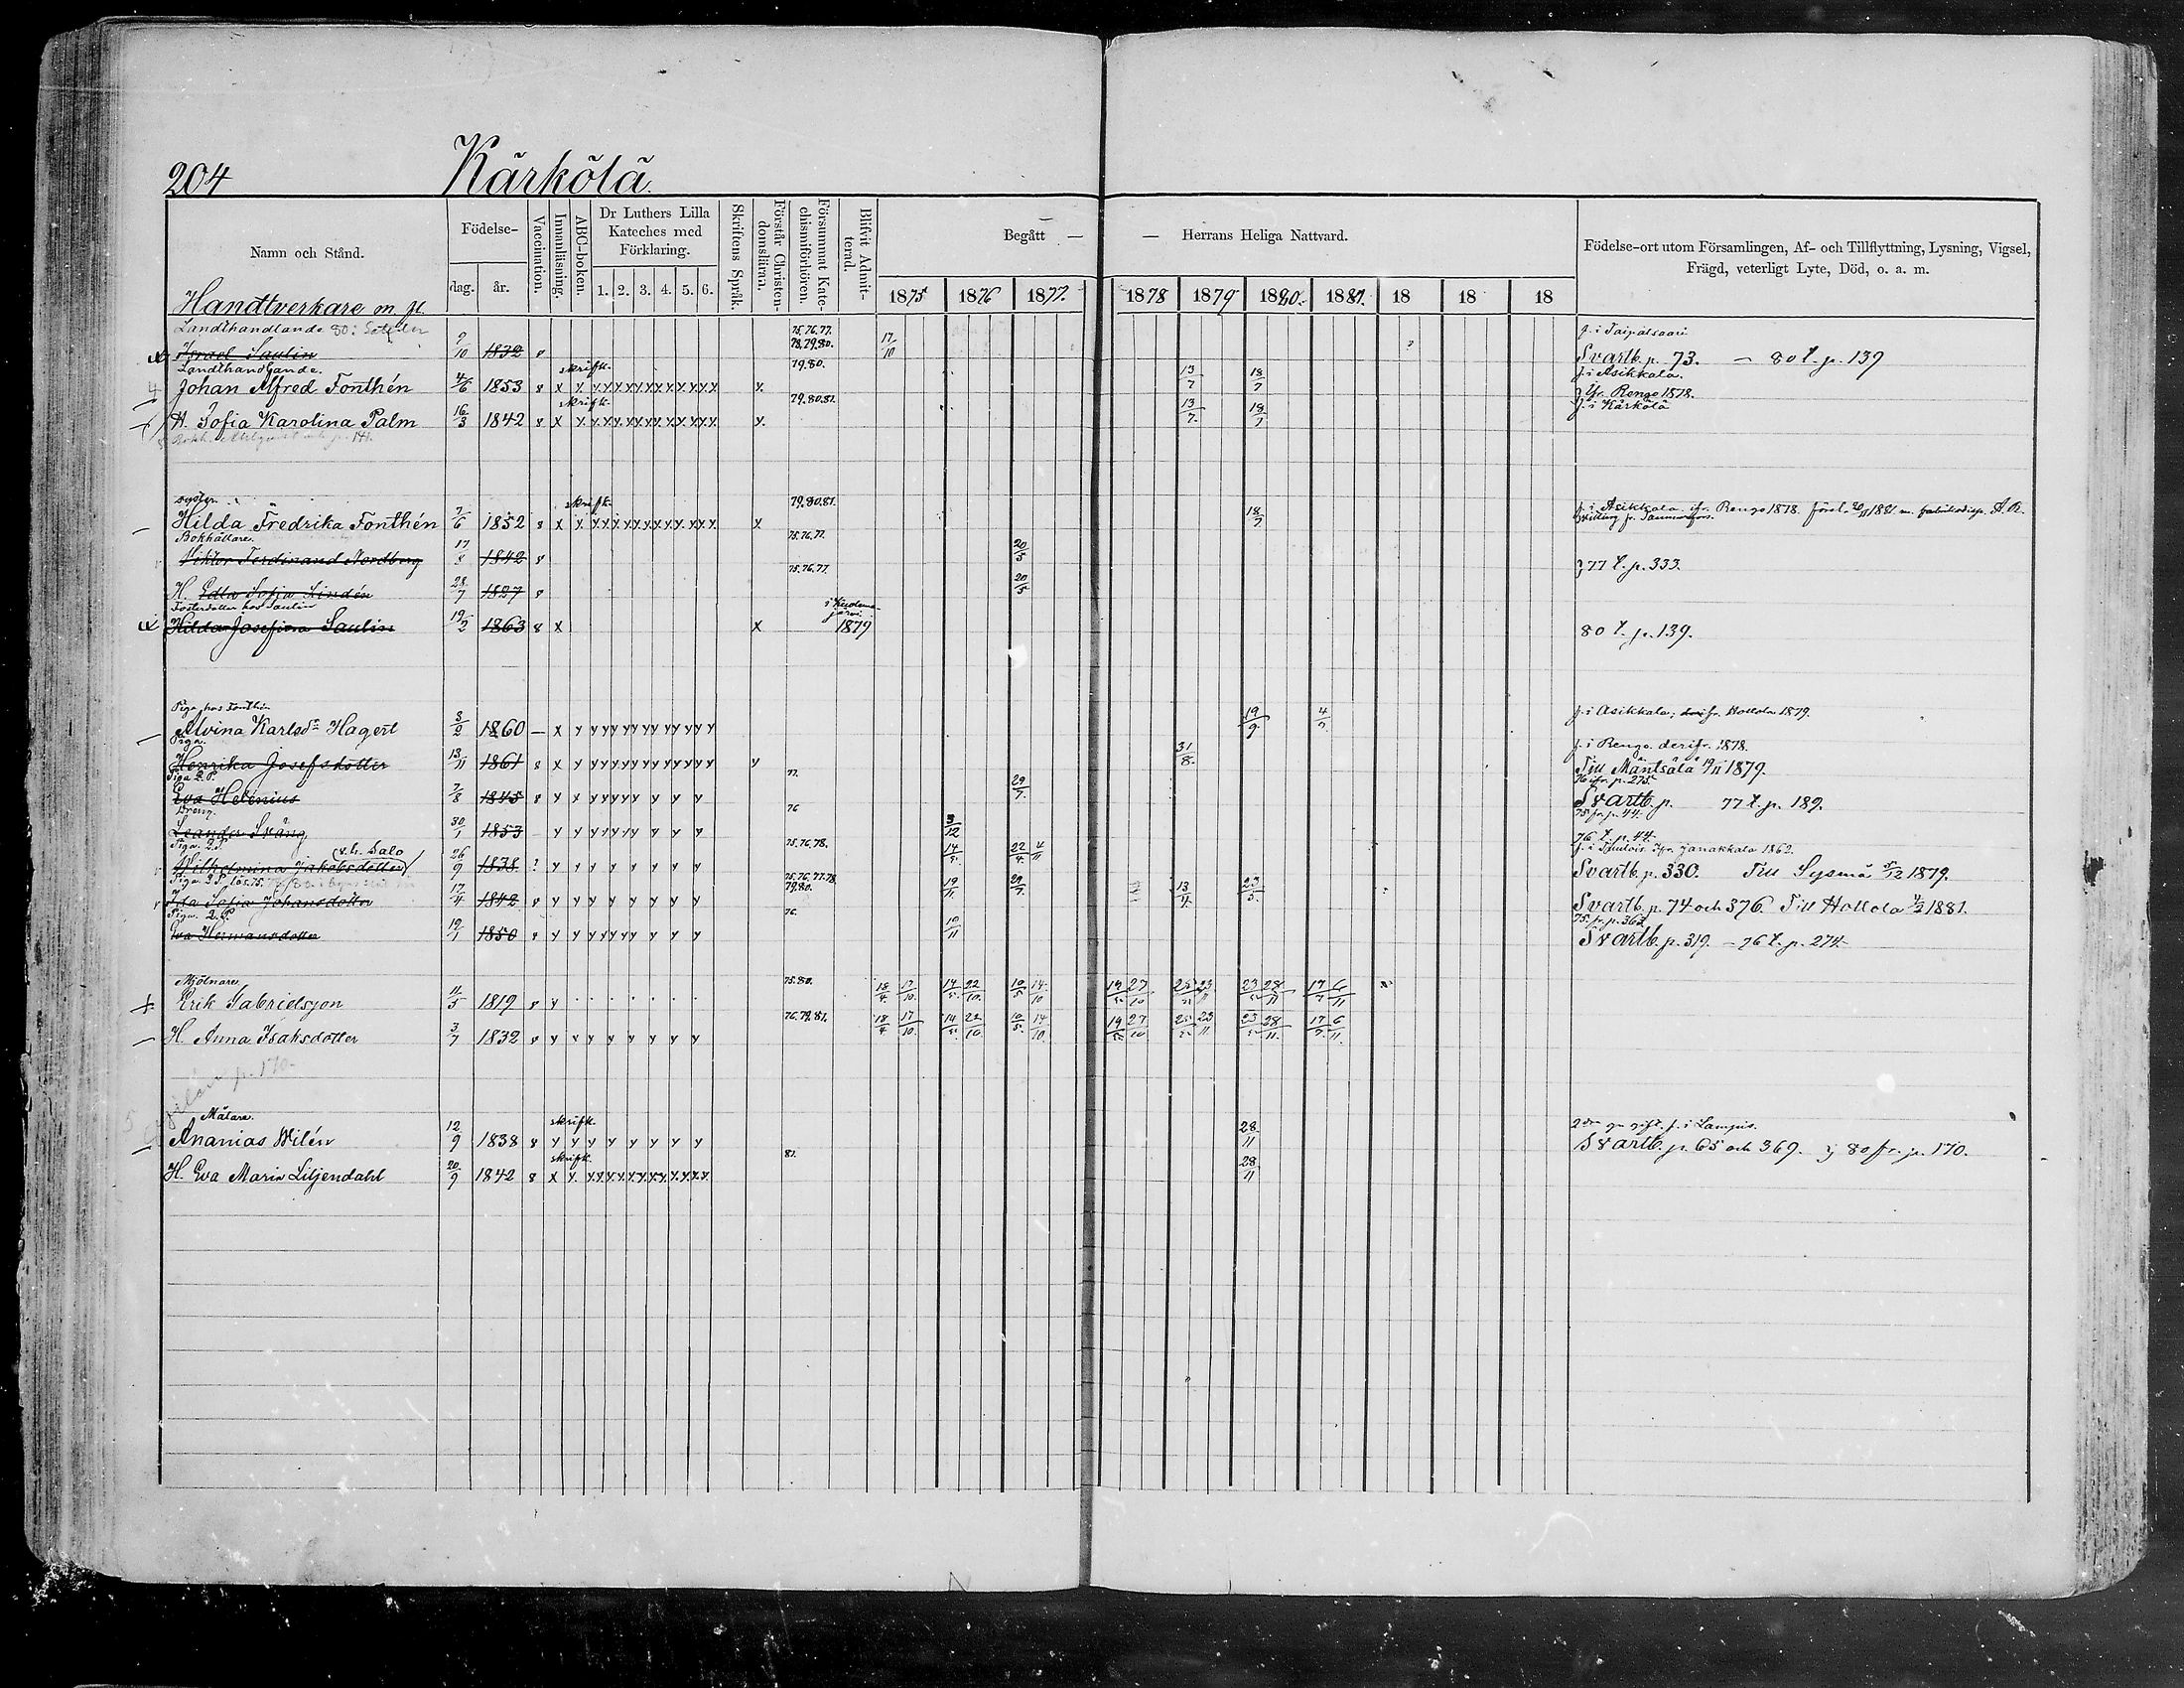 204 Kärkölä
Namn och Stånd.
Födelse-
dag. år.
Vaccination.
Innanläsning.
ABC-boken.
Dr Luthers Lilla Kateches med Förklaring.
1. 2. 3. 4. 5. 6.
Skriftens Språk.
Förstår Christen-domsläran.
Försummat Kate-chismiförhören.
Blifvit Admit-terad.
Begått — — Herrans Heliga Nattvard.
1875 1876 1877. 1878 1879 1880. 1881. 18 18 18
Födelse-ort utom Församlingen, Af- och Tillflyttning, Lysning, Vigsel, Frägd, veterligt Lyte, Död, o. a. m.
Handtverkare m. fl.
Landthandlande 75.76.77. f. i Taipalsaari
Israel Saulin 9/10 1832 78.79.80. 17/10 Svartb. p. 73. — 80 t. p. 139
Landthandlande. skriftk. 79.80. f. i Asikkala.
Johan Alfred Fonthén 4/6 1853 13/7 18/7 Renge 1878.
skriftk. 79.80.81. f. i Kärkölä
H. Sofia Karolina Palm 16/3 1842 13/7. 18/7
syster skriftk. 79.80.81. f. i Asikkala. ifr. Renge 1878.
Hilda Fredrika Fonthén 7/6 1852 18/7
Bokhållare. 75.76.77.
Viktor Ferdinand Nordberg 17/8 1842 20/5 77 t. p. 333.
75.76.77.
H. Edla Sofia Lindén 28/7 1827 20/5
Fosterdotter hos Saulin
Hilda Josefina Saulin 19/2 1863 1879 80 t. p. 139.
Piga hos Fonthén f. i Asikkala, fr. Hollola 1879.
Alvina Karlsdr Hagert 3/2 1860 19/9 4/7
Piga. f. i Renge. derifr. 1878.
Henrika Josefsdotter 13/11 1861 31/8. Till Mäntsälä 19/11 1879.
Piga 77. 76 ifr. p. 275
Eva Helenius 7/8 1845 29/7. Svartb. p. 77 t. p. 189.
Dreng. 76 75 fr. p. 44.
Leander Sväng 30/1 1853 3/12 76 t. p. 44.
Piga. v. h. Salo 75.76.78. f. i Janakkala 1862.
Wilhelmina Jakobsdotter 26/9 1838 14/5. 22/4. 4/11 Svartb. p. 330. Till Sysmä 5/12 1879.
Piga 75.76.77.78. 79.80.
Ida Sofia Johansdotter 17/4 1842 19/11. 29/7. 13/4. 23/5. Svartb. p. 74 och 376. Till Hollola 1881.
Piga. 76. 75. fr. p. 362
Eva Hermansdotter 19/1 1850 10/11 Svartb. p. 319. — 76 t. p. 274.
Mjölnare 75.80.
Erik Gabrielsson 11/5 1819 18/4. 17/10. 14/5. 22/10. 10/5 14/10 19/5 27/10 25/5 23/11 23/5 28/11 17/7 6/11
76.79.81.
H. Anna Isaksdotter 3/7 1832 18/4 17/10. 14/5. 22/10 10/5. 14/10. 19/5 27/10 25/5 23/11 23/5 28/11. 17/7. 6/11.
p. 170.
Målare. skriftk. gift. f. i Lampis.
Ananias Wilén 12/9 1838 28/11 Svartb. p. 65 och 369. 80 fr. p. 170.
skriftk. 81.
H. Eva Maria Liljendahl 20/9 1842 28/11